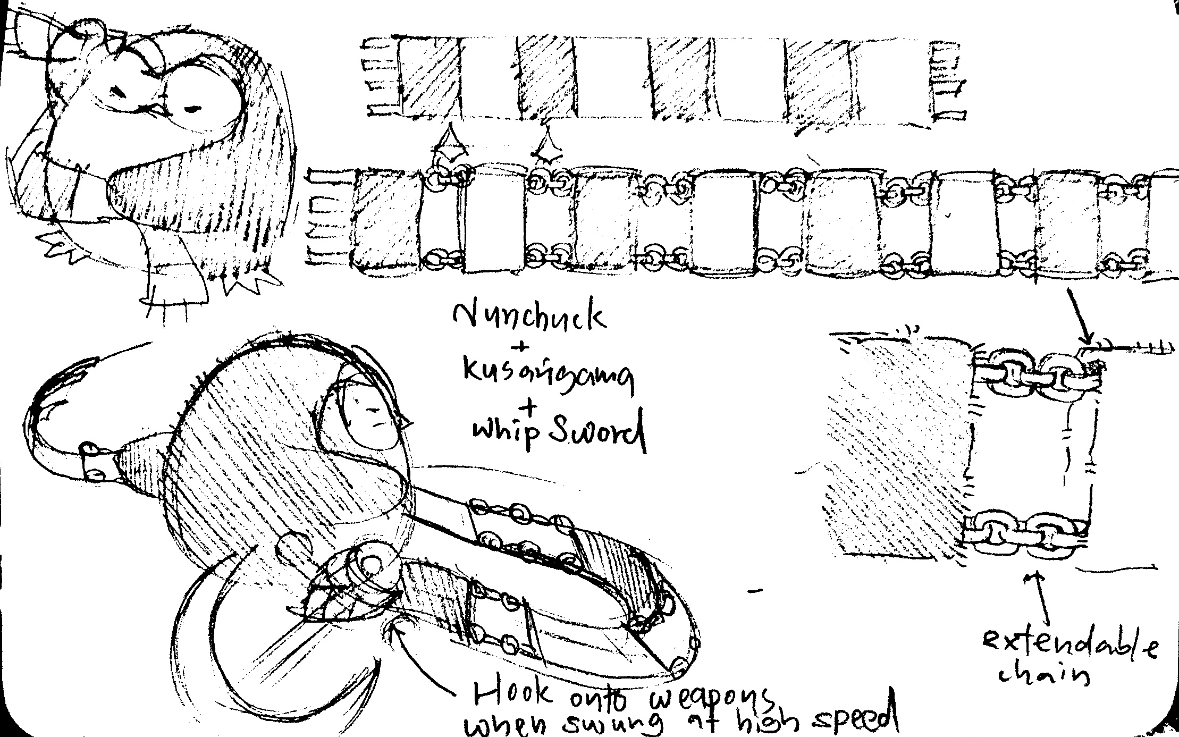 Nunchuck
+
kusarigama
+
whip Sword
extendable
chain
Hook onto weapons
when swung at high speed